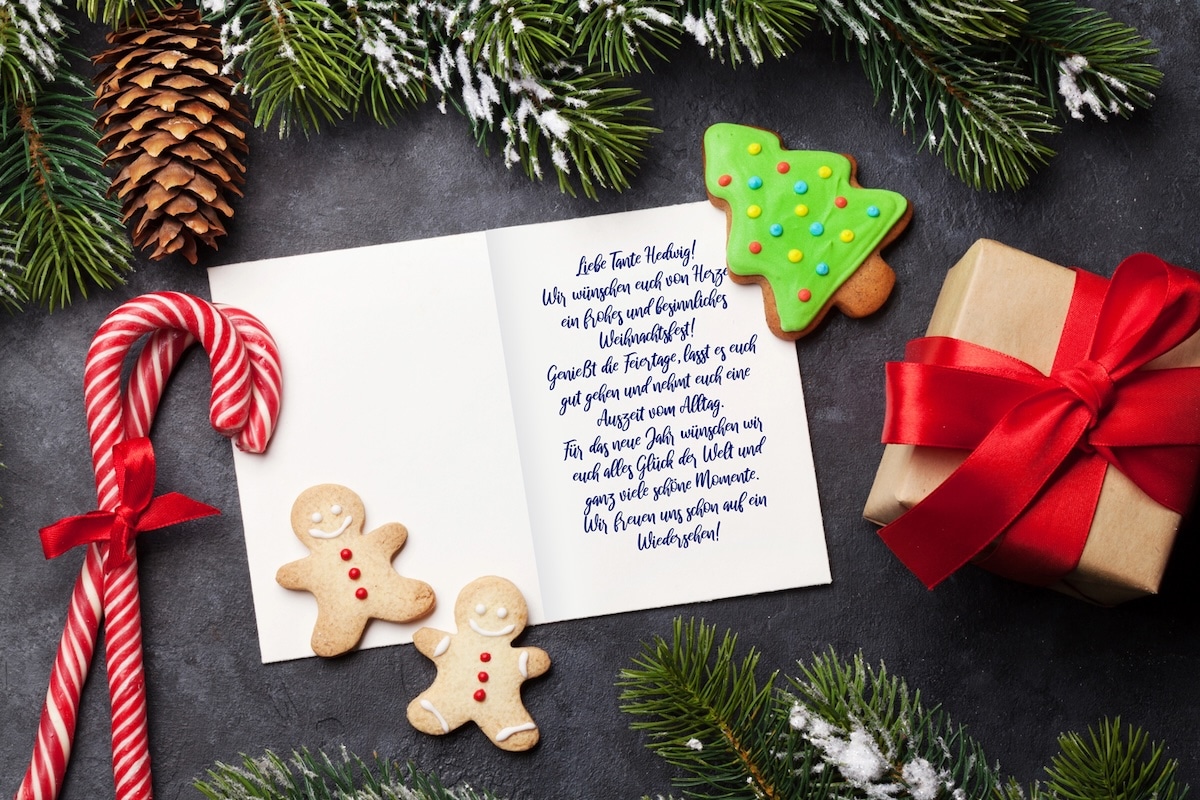 Liebe Tante Hedwig!
Wir wünschen euch von Herze
ein frohes und besinnliches
Weihnachtsfest!
Genießt die Feiertage, lasst es euch
gut gehen und nehmt euch eine
Auszeit vom Alltag.
Für das neue Jahr wünschen wir
euch alles Glück der Welt und
ganz viele schöne Momente.
Wir freuen uns schon auf ein
Wiedersehen!